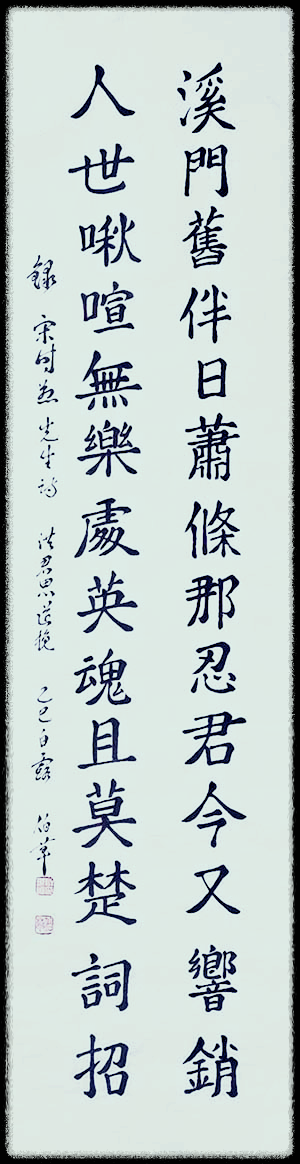 溪門舊伴日蕭條那忍君今又響銷
人世啾喧無樂處英魂且莫楚詞招
錄 宋時烈先生詩 洪君思道挽 乙巳白露